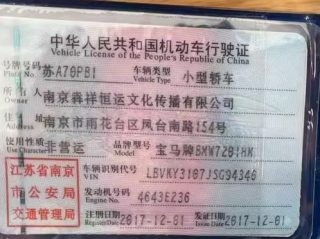 中华人民共和国机动车行驶证
Vehicle License of the People's Republic of China
号牌号码 苏A70PB1 车辆类型 小型轿车
Plate No. Vehicle Type
所有人 南京犇祥恒运文化传播有限公司
Owner
住址 南京市雨花台区凤台南路154号
Address
使用性质 非营运 品牌型号 宝马牌BMW7201HK
Use Character
江苏省南京市公安局交通管理局
车辆识别代号 LBVKY3107JSG94346
VIN
发动机号码 4643E236
Engine No.
注册日期 2017-12-01 发证日期 2017-12-01
Register Date Issue Date